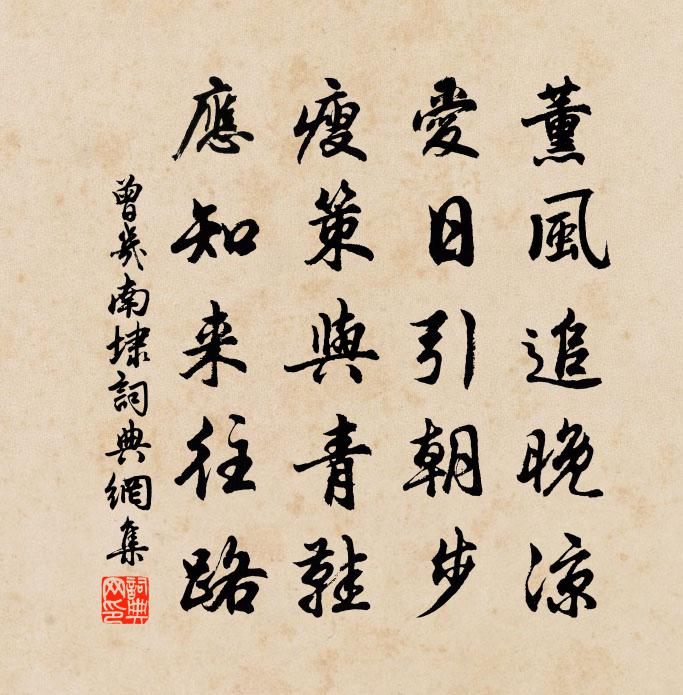 薰風追晚涼
愛日引朝步
瘦策與青鞋
應知来往路
曾幾南埭詞典網集
詞典網印